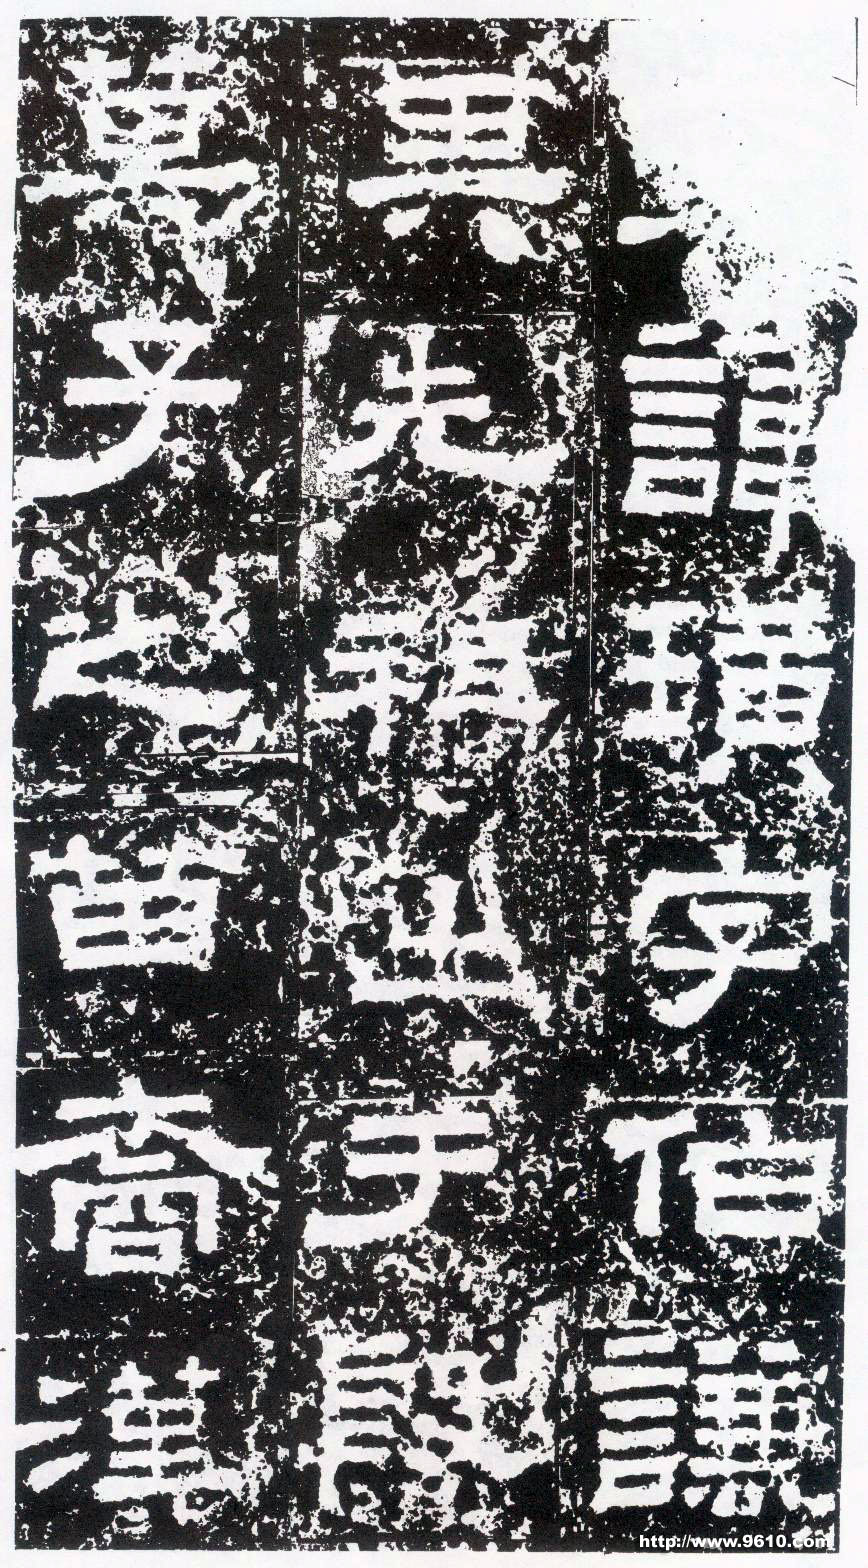 諱璜字伯謙
其先祖出于殷
箕子之苗裔漢
http://www.9610.com